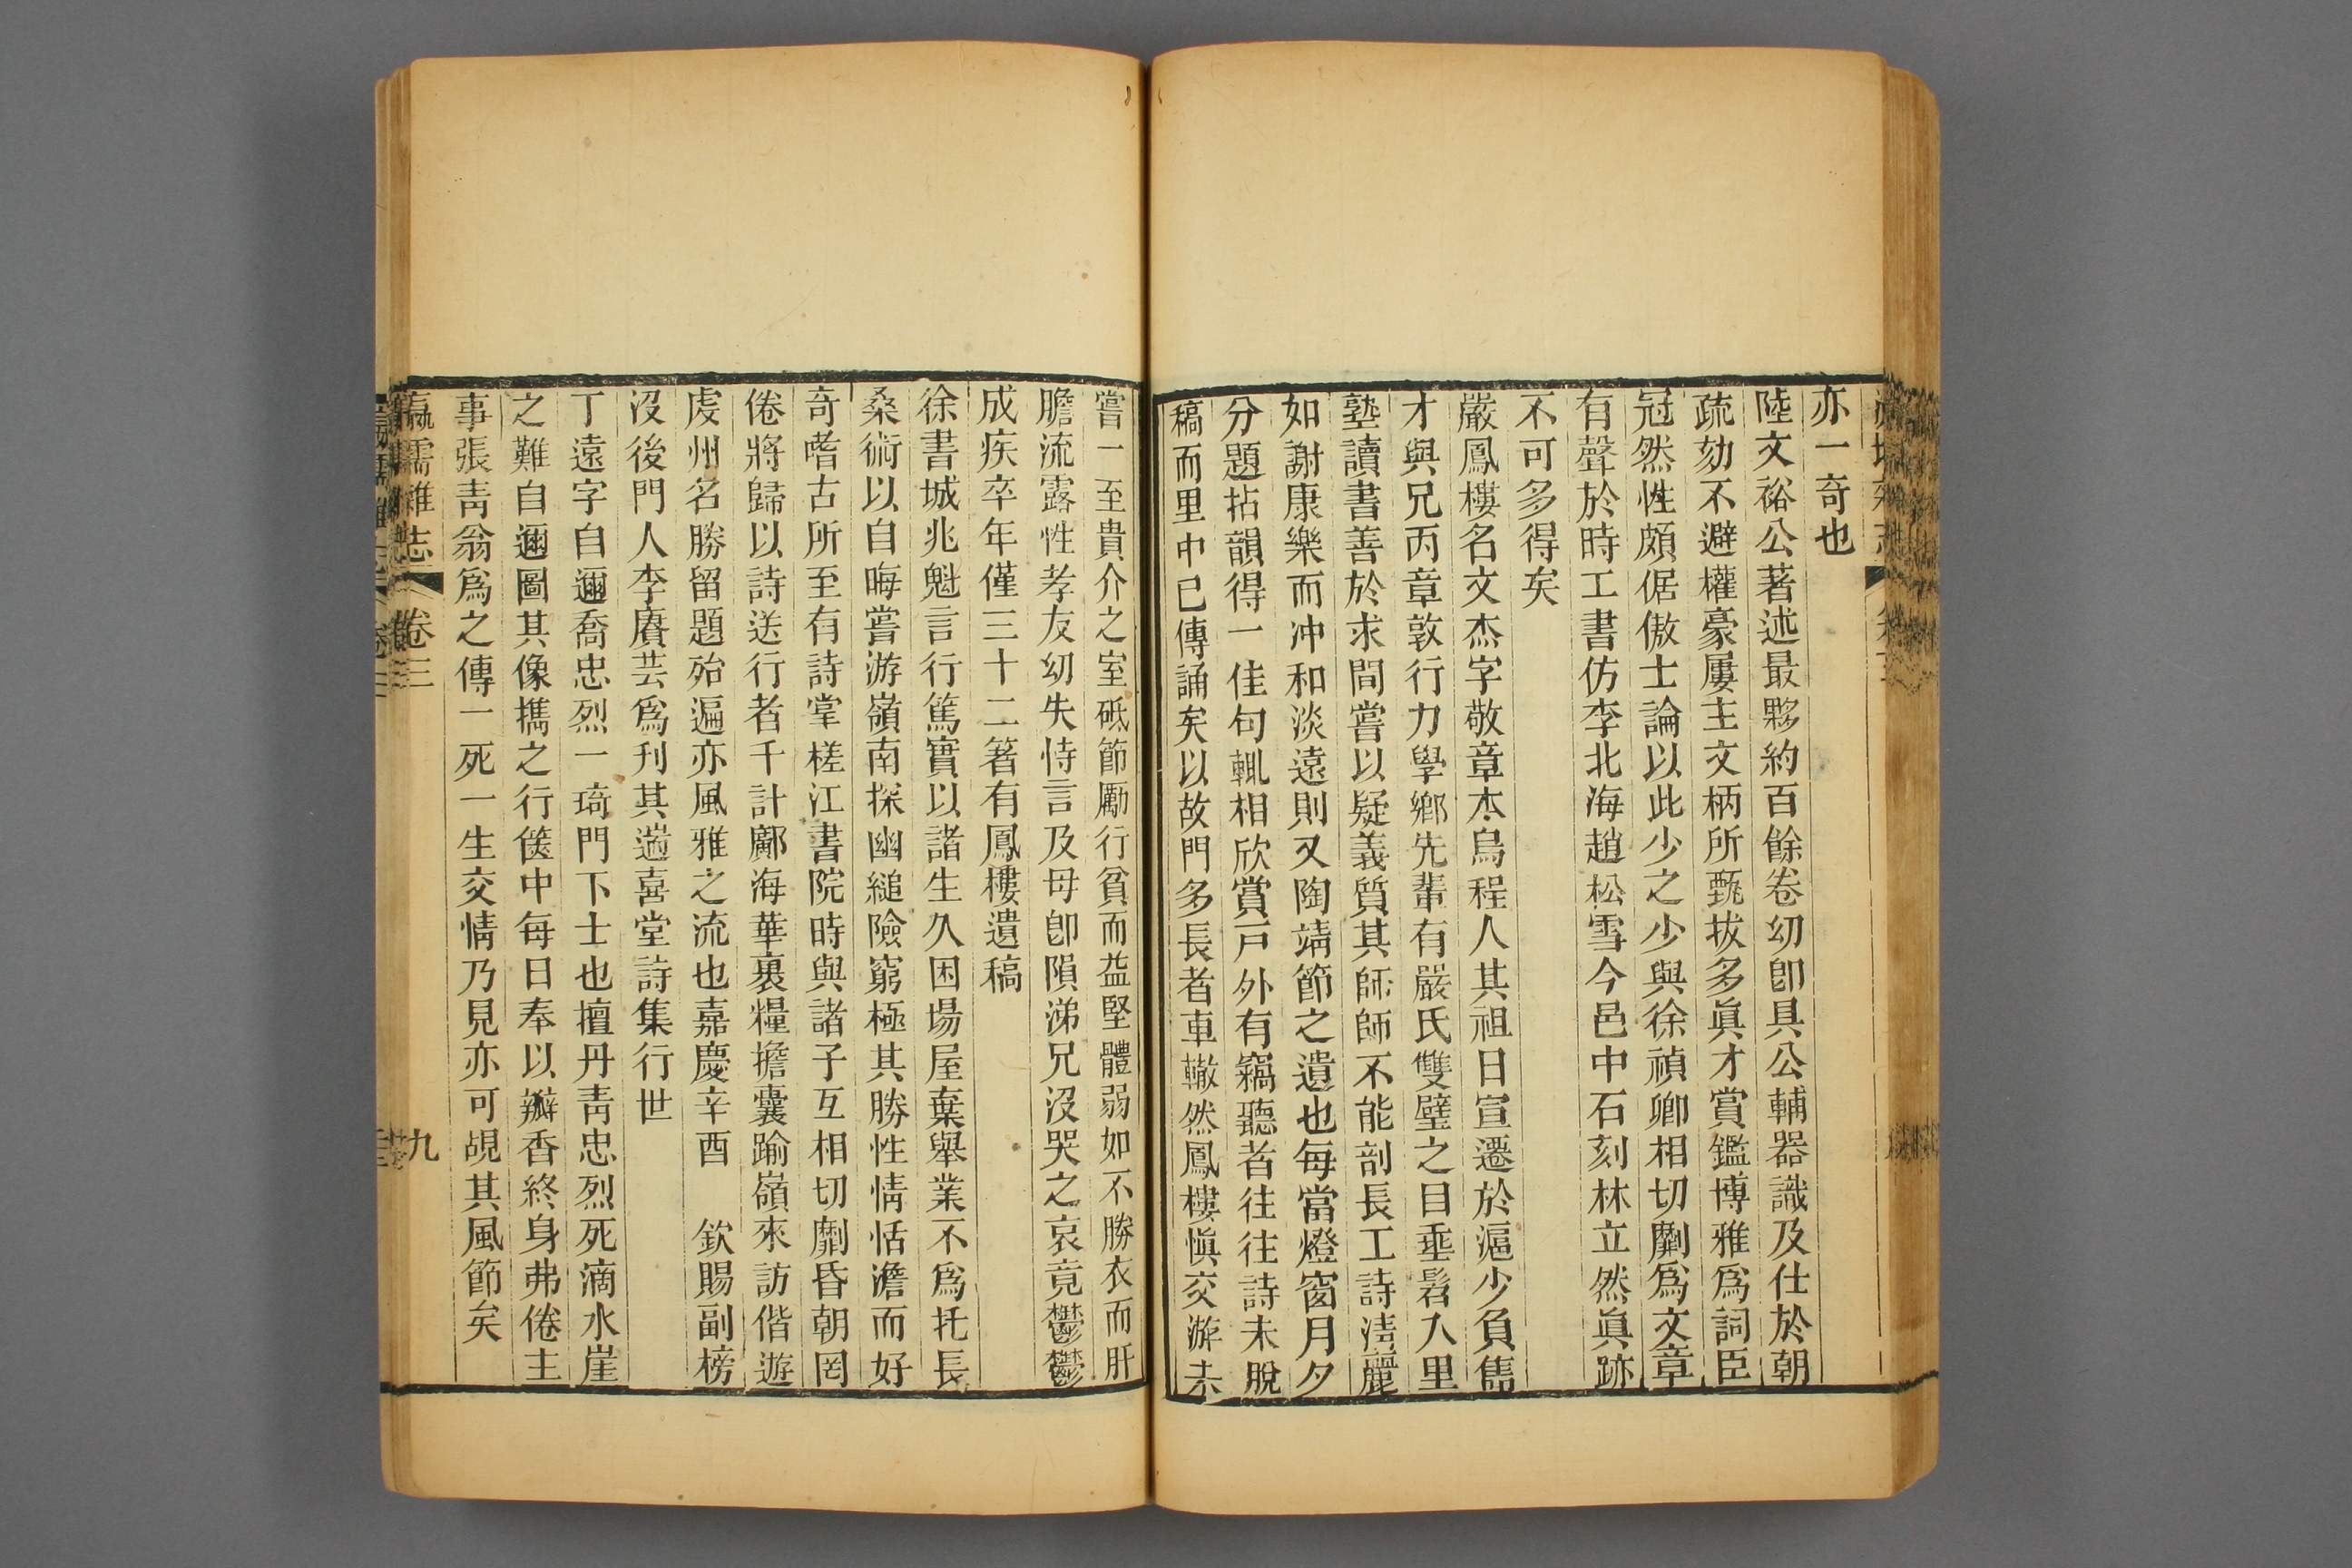 亦一奇也
陸文裕公著述最夥約百餘卷幼卽具公輔器識及仕於朝
疏劾不避權豪屢主文柄所甄拔多眞才賞鑑博雅爲詞臣
冠然性頗倨傲士論以此少之少與徐禎卿相切劘爲文章
有聲於時工書仿李北海趙松雪今邑中石刻林立然眞跡
不可多得矣
嚴鳳樓名文杰字敬章本烏程人其祖日宣遷於滬少負雋
才與兄丙章敦行力學鄉先輩有嚴氏雙璧之目垂髫入里
塾讀書善於求問嘗以疑義質其師師不能剖長工詩淸麗
如謝康樂而冲和淡遠則又陶靖節之遺也每當燈窗月夕
分題拈韻得一佳句輒相欣賞戸外有竊聽者往往詩未脫
稿而里中已傳誦矣以故門多長者車轍然鳳樓愼交游未
嘗一至貴介之室砥節勵行貧而益堅體弱如不勝衣而肝
膽流露性孝友幼失恃言及母卽隕涕兄沒哭之哀竟鬱鬱
成疾卒年僅三十二箸有鳳樓遺稿
徐書城兆魁言行篤實以諸生久困場屋棄舉業不爲托長
桑術以自晦嘗游嶺南探幽縋險窮極其勝性情恬澹而好
奇嗜古所至有詩掌槎江書院時與諸子互相切劘昏朝罔
倦將歸以詩送行者千計鄺海華裹糧擔囊踰嶺來訪偕遊
虔州名勝留題殆遍亦風雅之流也嘉慶辛酉　欽賜副榜
沒後門人李賡芸爲刊其遒喜堂詩集行世
丁遠字自邇喬忠烈一琦門下士也擅丹靑忠烈死滴水崖
之難自邇圖其像攜之行篋中每日奉以瓣香終身弗倦主
事張靑翁爲之傳一死一生交情乃見亦可覘其風節矣
瀛壖雜志　卷三　九